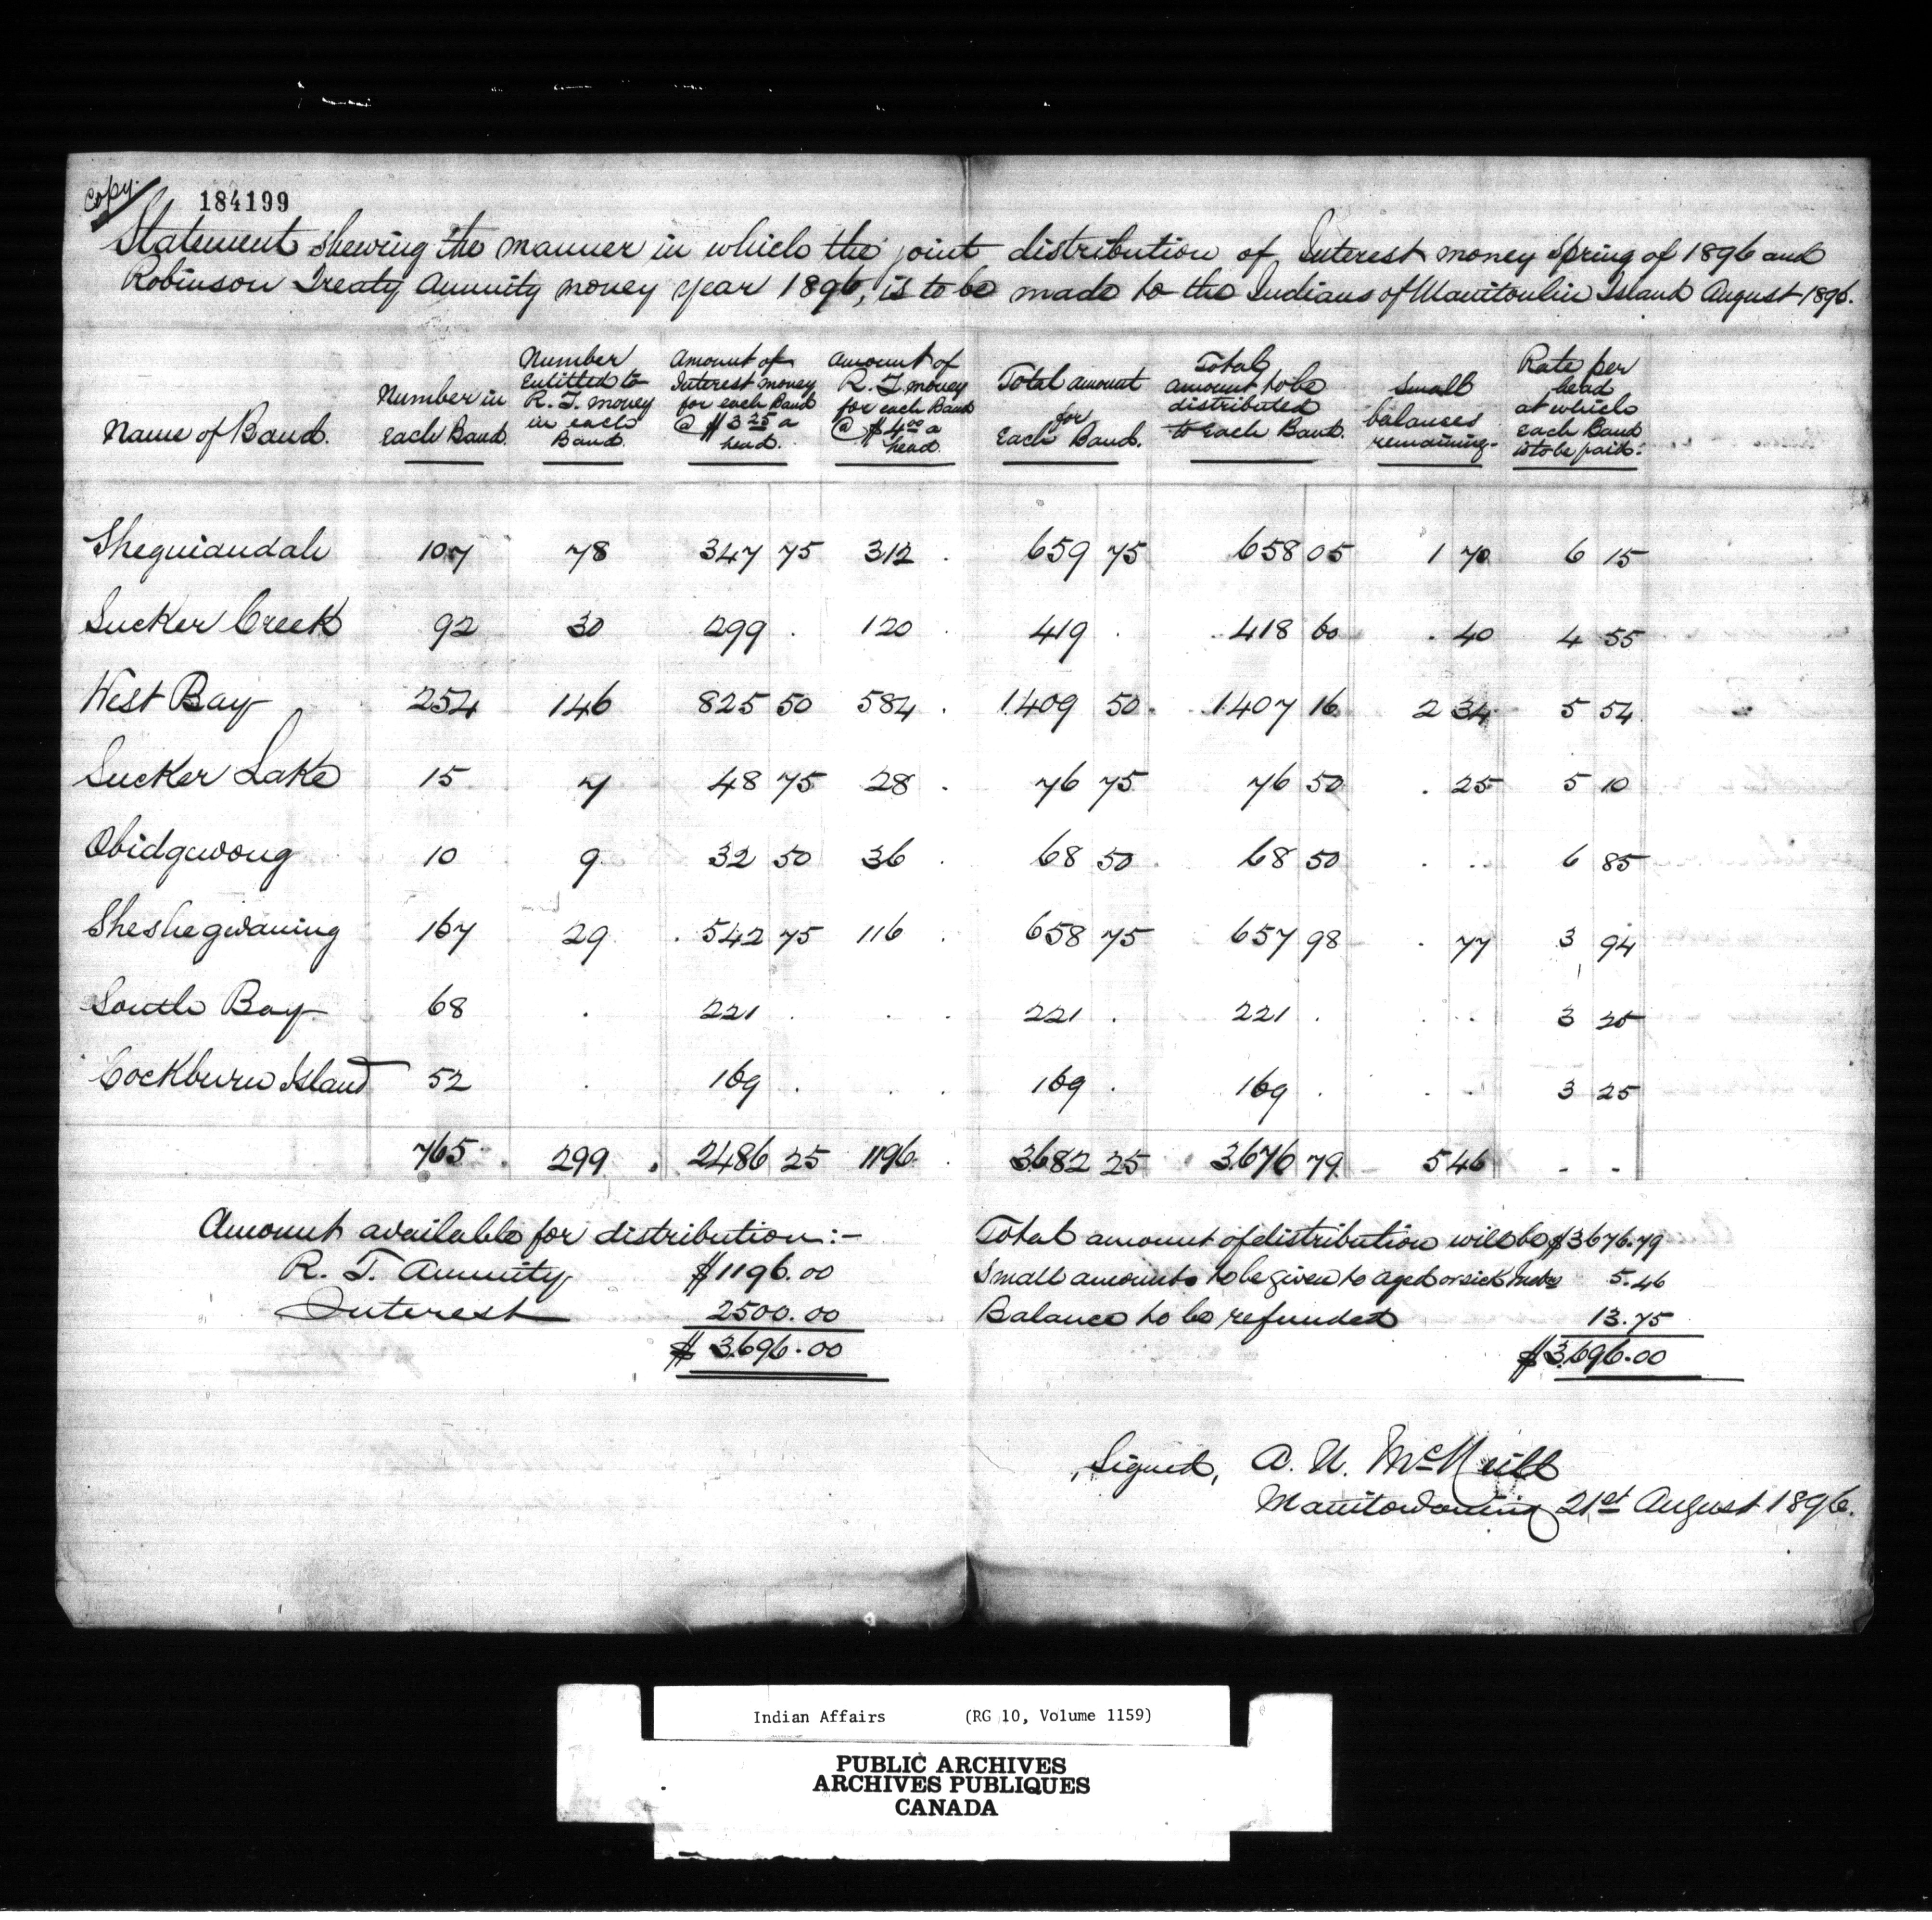 Copy.
184199
Statement shewing the manner in which the joint distribution of Interest money Spring of 1896 and
Robinson Treaty Annuity money year 1896, is to be made to the Indians of Manitoulin Island August 1896.
Name of Band. | Number in each Band. | Number Entitled to R. T. money in each Band. | Amount of Interest money for each Band @ $3 25 a head. | Amount of R. T money for each Band @ $4 00 a head. | Total amount for Each Band. | Total amount to be distributed to each Band. | Small balances remaining. | Rate per head at which each Band is to be paid.
Sheguiandah 107 78 347 75 312 . 659 75 658 05 1 70 6 15
Sucker Creek 92 30 299 . 120 . 419 . 418 60 . 40 4 55
West Bay 254 146 825 50 584 . 1409 50 1407 16 2 34 5 54
Sucker Lake 15 7 48 75 28 . 76 75 76 50 . 25 5 10
Obidgewong 10 9 32 50 36 . 68 50 68 50 . .. 6 85
Sheshegwaning 167 29 542 75 116 . 658 75 657 98 . 77 3 94
South Bay 68 . 221 . . . 221 . 221 . . .. 3 25
Cockburn Island 52 . 169 . . . 169 . 169 . . . 3 25
765 299 2486 25 1196 . 3682 25 3676 79 5 46 - -
Amount available for distribution:-
R. T. Annuity $1196.00
Interest 2500.00
$3696.00
Total amount of distribution will be $3676.79
Small amounts to be given to aged or sick Inds 5.46
Balance to be refunded 13.75
$3696.00
Signed, A. McNeill
Manitowaning 21st August 1896.
Indian Affairs (RG 10, Volume 1159)
PUBLIC ARCHIVES
ARCHIVES PUBLIQUES
CANADA